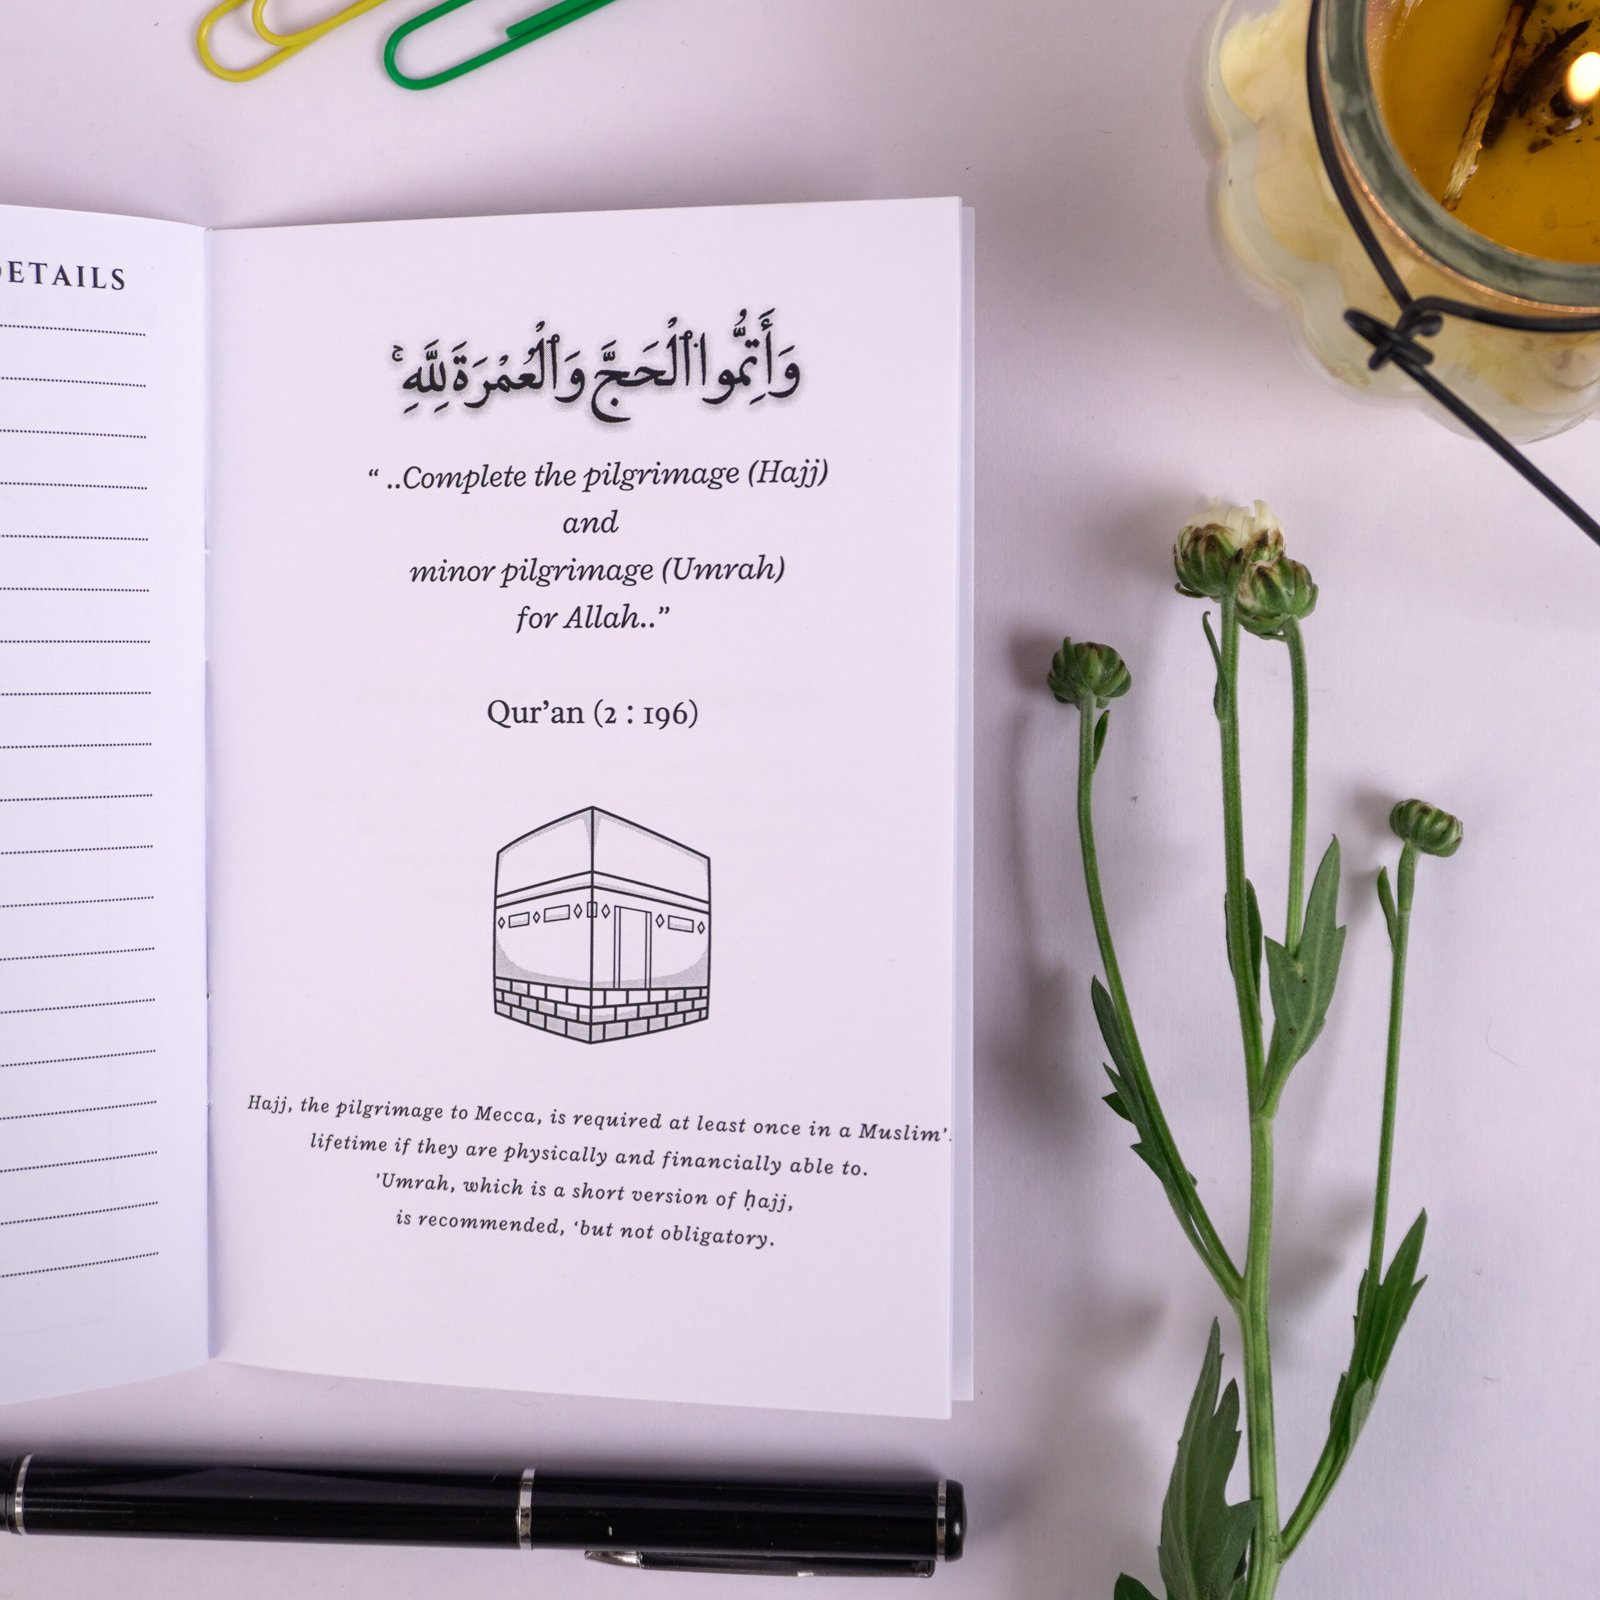 DETAILS
وَأَتِمُّوا ٱلْحَجَّ وَٱلْعُمْرَةَ لِلَّهِ ۚ
“ ..Complete the pilgrimage (Hajj)
and
minor pilgrimage (Umrah)
for Allah..”
Qur’an (2 : 196)
Hajj, the pilgrimage to Mecca, is required at least once in a Muslim’s
lifetime if they are physically and financially able to.
’Umrah, which is a short version of ḥajj,
is recommended, ‘but not obligatory.